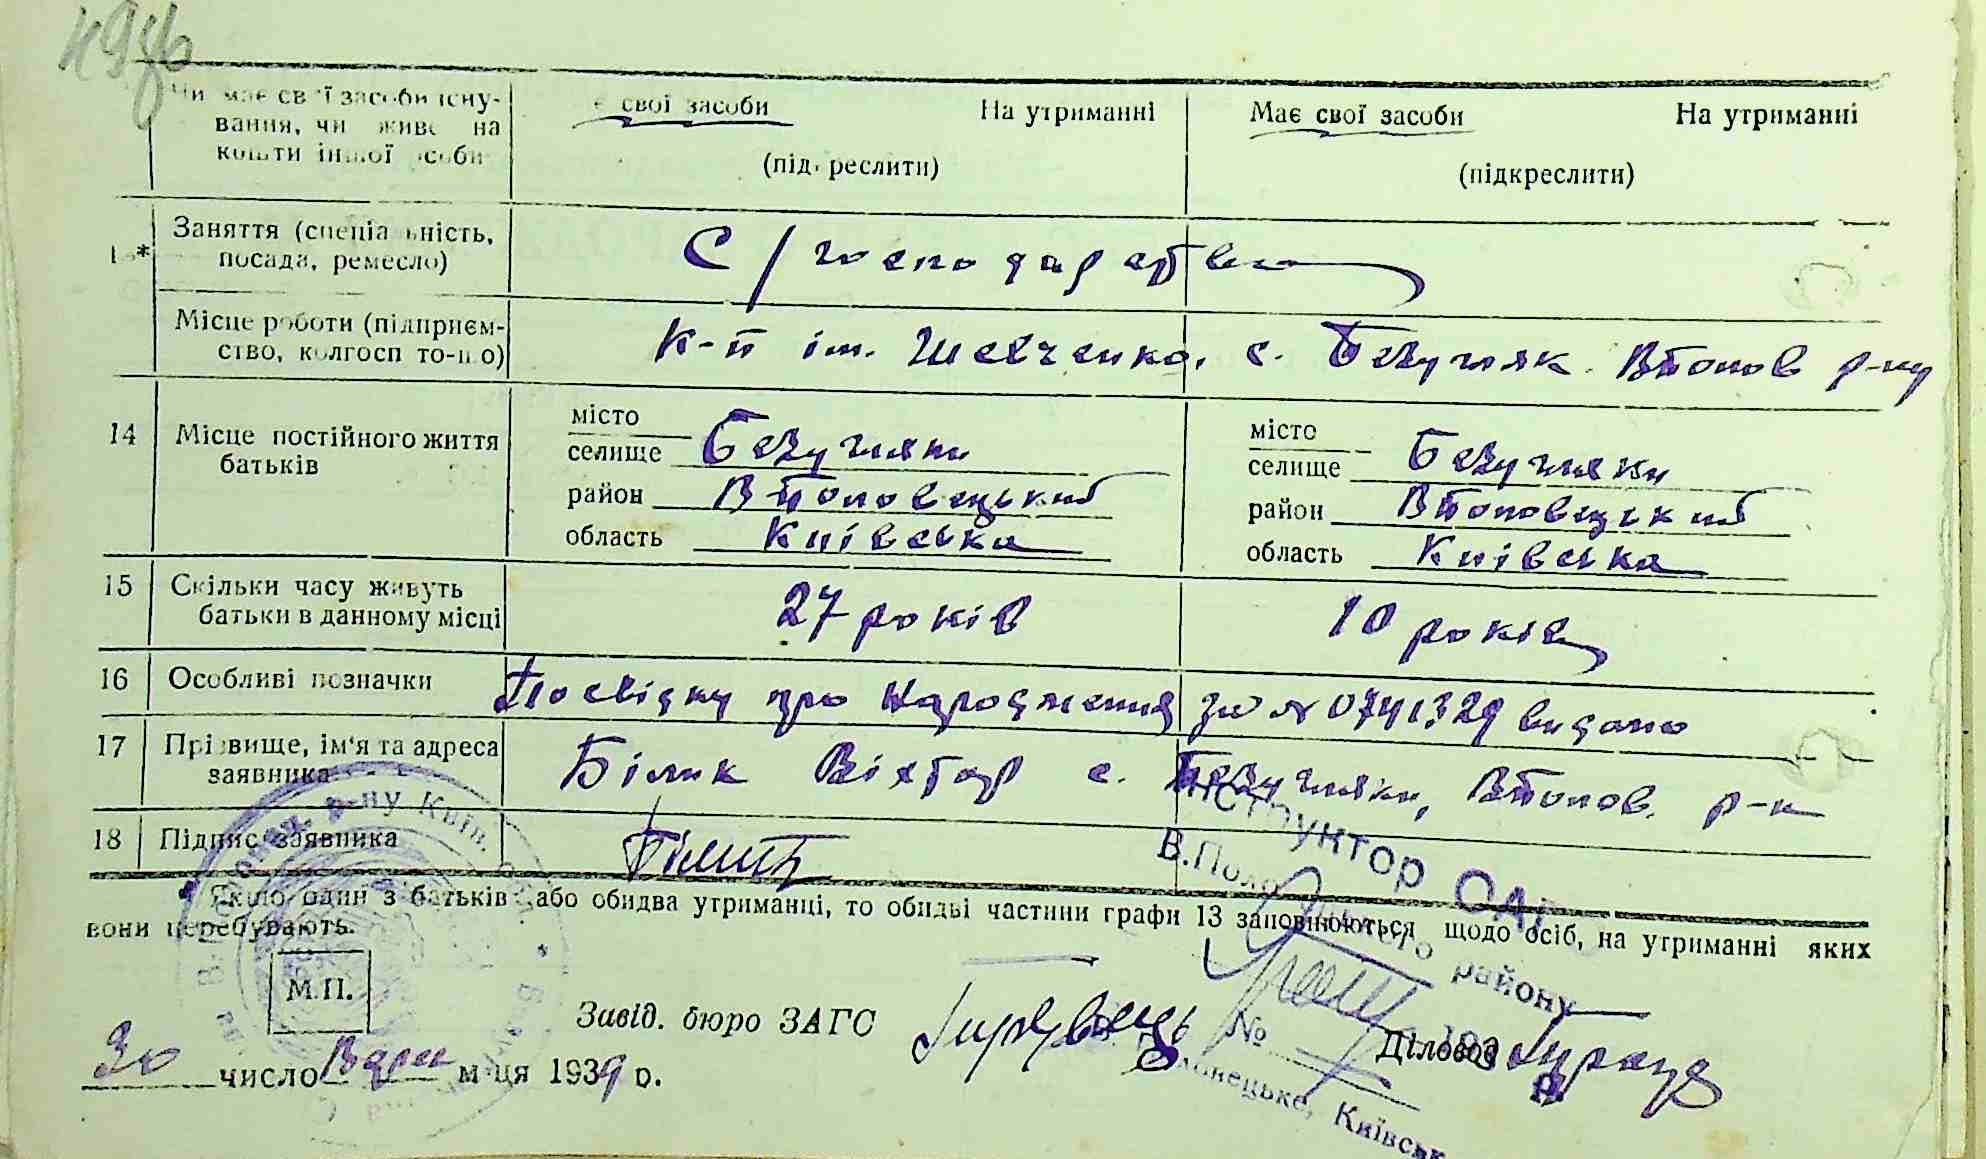 Чи має свої засоби існування, чи живе на кошти іншої особи
є свої засоби На утриманні
(підкреслити)
Має свої засоби На утриманні
(підкреслити)
Заняття (спеціальність, посада, ремесло)
С/господарство
Місце роботи (підприємство, колгосп то-що)
К-п ім. Шевченка, с. Безугляк В Полов р-ну
14 Місце постійного життя батьків
місто
селище Безугляки
район В Половецький
область Київська
місто
селище Безугляки
район В Половецький
область Київська
15 Скільки часу живуть батьки в данному місці
27 років
10 років
16 Особливі позначки
Посвідку про народження за № 0741329 видано
17 Прізвище, ім'я та адреса заявника
Білик Віктор с. Безугляки, В Полов. р-н
18 Підпис заявника
Якщо один з батьків або обидва утриманці, то обидві частини графи 13 заповнюються щодо осіб, на утриманні яких
вони перебувають.
М.П.
Завід. бюро ЗАГС
Діловод
30 число м-ця 1939 р.
р-ну Київ.
В.Поло
району
№
193 р.
Київськ